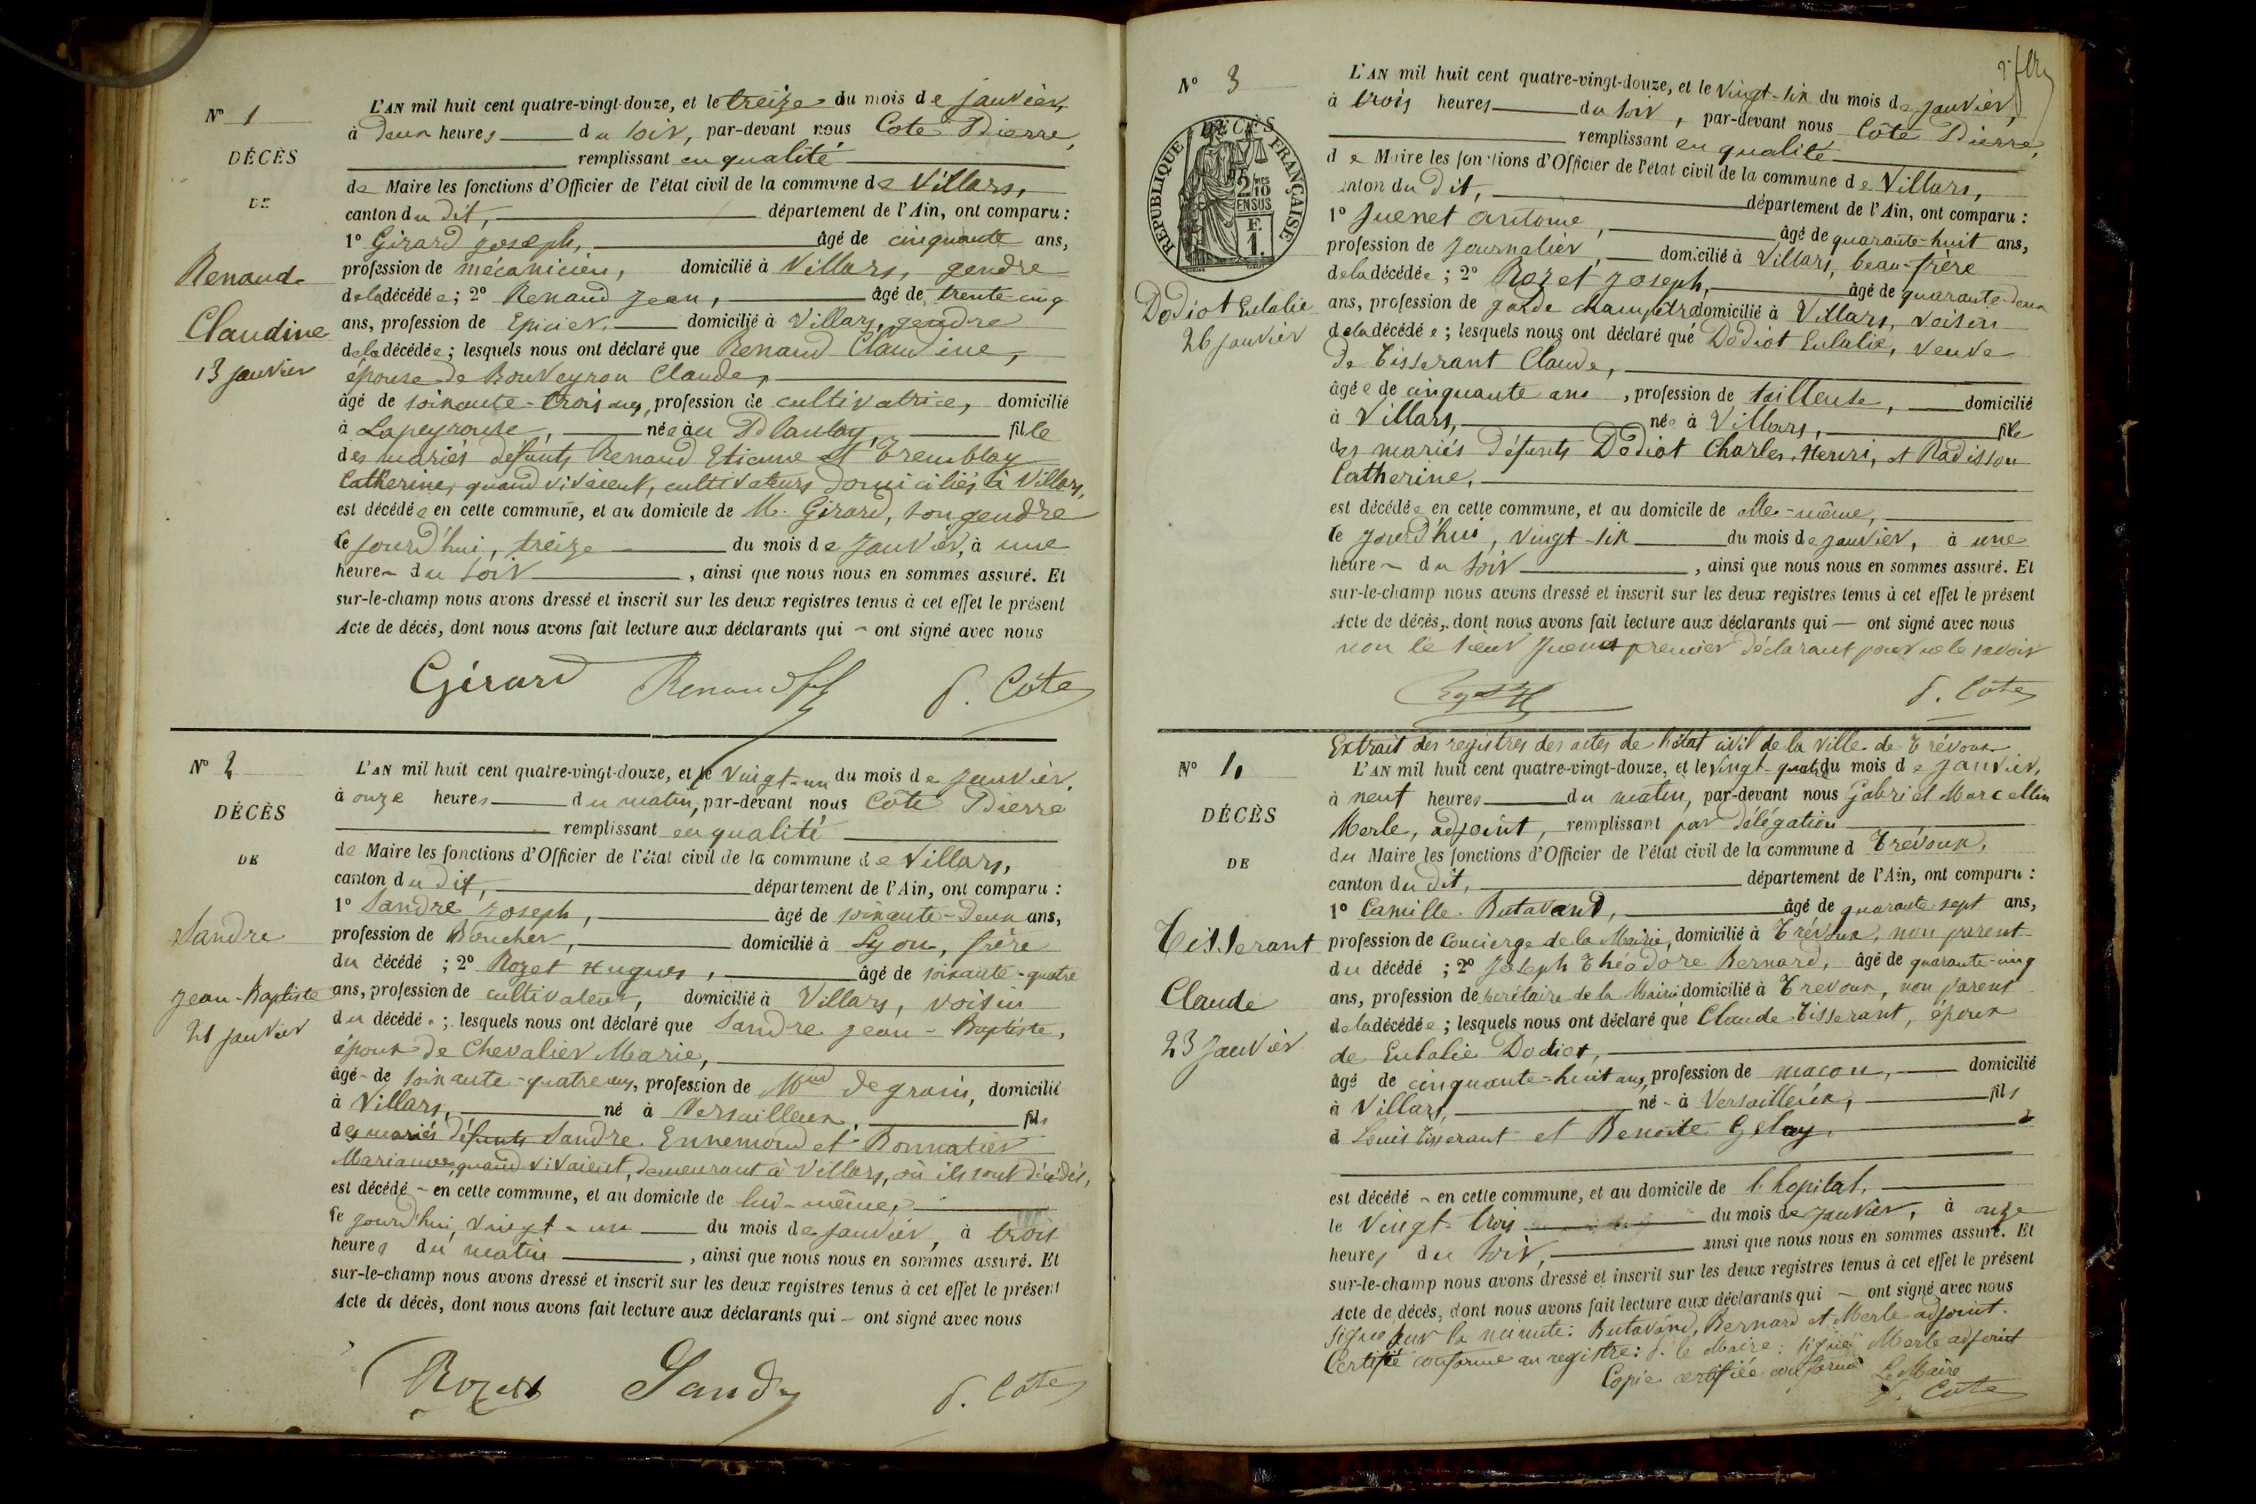 N° 1
DÉCÈS
DE
Renaud
Claudine
13 janvier
L'AN mil huit cent quatre-vingt-douze, et le treize du mois de janvier,
à deux heures du soir, par-devant nous Cote Pierre,
remplissant en qualité
de Maire les fonctions d'Officier de l'état civil de la commune de Villars,
canton du dit, département de l'Ain, ont comparu :
1° Girard Joseph, âgé de cinquante ans,
profession de mécanicien, domicilié à Villars, gendre
de la décédée ; 2° Renaud Jean, âgé de trente-cinq
ans, profession de Epicier, domicilié à Villars, gendre
de la décédée ; lesquels nous ont déclaré que Renaud Claudine,
épouse de Bouveyron Claude,
âgé de soixante-trois ans, profession de cultivatrice, domicilié
à Lapeyrouse, née au Plantay, fille
des mariés défunts Renaud Etienne et Tremblay
Catherine, quand vivaient, cultivateurs domiciliés à Villars,
est décédée en cette commune, et au domicile de M. Girard, son gendre
le jourd'hui, treize du mois de janvier, à une
heure du soir, ainsi que nous nous en sommes assuré. Et
sur-le-champ nous avons dressé et inscrit sur les deux registres tenus à cet effet le présent
Acte de décès, dont nous avons fait lecture aux déclarants qui ont signé avec nous
Girard Renaud P. Côte
N° 2
DÉCÈS
DE
Sandre
Jean-Baptiste
21 janvier
L'AN mil huit cent quatre-vingt-douze, et le vingt-un du mois de janvier,
à onze heures du matin, par-devant nous Côte Pierre
remplissant en qualité
de Maire les fonctions d'Officier de l'état civil de la commune de Villars,
canton du dit, département de l'Ain, ont comparu :
1° Sandre Joseph, âgé de soixante-deux ans,
profession de Boucher, domicilié à Lyon, frère
du décédé ; 2° Rozet Hugues, âgé de soixante-quatre
ans, profession de cultivateur, domicilié à Villars, voisin
du décédé ; lesquels nous ont déclaré que Sandre Jean-Baptiste,
époux de Chevalier Marie,
âgé de soixante-quatre ans, profession de Mnd de grain, domicilié
à Villars, né à Versailleux, fils
des mariés défunts Sandre Ennemond et Bonnatier
Marianne, quand vivaient, demeurant à Villars, où ils sont décédés,
est décédé en cette commune, et au domicile de lui-même,
le jourd'hui, vingt-un du mois de janvier, à trois
heures du matin, ainsi que nous nous en sommes assuré. Et
sur-le-champ nous avons dressé et inscrit sur les deux registres tenus à cet effet le présent
Acte de décès, dont nous avons fait lecture aux déclarants qui ont signé avec nous
Rozet Sandre P. Côte
N° 3
DÉCÈS
RÉPUBLIQUE FRANÇAISE
2 MES 10
EN SUS
E
1.
Dodiot Eulalie
26 janvier
L'AN mil huit cent quatre-vingt-douze, et le vingt-six du mois de janvier,
à trois heures du soir, par-devant nous Côte Pierre,
remplissant en qualité
de Maire les fonctions d'Officier de l'état civil de la commune de Villars,
canton du dit, département de l'Ain, ont comparu :
1° Juenet Antoine, âgé de quarante-huit ans,
profession de journalier, domicilié à Villars, beau-frère
de la décédée ; 2° Rozet Joseph, âgé de quarante-deux
ans, profession de garde champêtre domicilié à Villars, voisin
de la décédée ; lesquels nous ont déclaré que Dodiot Eulalie, veuve
de Tisserant Claude,
âgée de cinquante ans, profession de tailleuse, domicilié
à Villars, née à Villars, fille
des mariés défunts Dodiot Charles-Henri, et Radisson
Catherine,
est décédée en cette commune, et au domicile de elle-même,
le jourd'hui, vingt-six du mois de janvier, à une
heure du soir, ainsi que nous nous en sommes assuré. Et
sur-le-champ nous avons dressé et inscrit sur les deux registres tenus à cet effet le présent
Acte de décès, dont nous avons fait lecture aux déclarants qui ont signé avec nous
non le sieur Juenet premier déclarant pour ne le savoir
P. Côte
Extrait des registres des actes de l'état civil de la ville de Trévoux
N° 4
DÉCÈS
DE
Tisserant
Claude
23 janvier
L'AN mil huit cent quatre-vingt-douze, et le vingt-quatre du mois de janvier,
à neuf heures du matin, par-devant nous Gabriel Marcellin
Merle, adjoint, remplissant par délégation
du Maire les fonctions d'Officier de l'état civil de la commune d Trévoux,
canton du dit, département de l'Ain, ont comparu :
1° Camille Butavand, âgé de quarante sept ans,
profession de concierge de la Mairie, domicilié à Trévoux, non parent
du décédé ; 2° Joseph Théodore Bernard, âgé de quarante-cinq
ans, profession de secrétaire de la Mairie domicilié à Trévoux, non parent
de la décédée ; lesquels nous ont déclaré que Claude Tisserant, époux
de Eulalie Dodiot,
âgé de cinquante-huit ans, profession de maçon, domicilié
à Villars, né à Versailleux, fils
d Louis Tisserant et Benoîte Gelay,
est décédé en cette commune, et au domicile de l'hopital,
le vingt-trois du mois de janvier, à onze
heures du soir, ainsi que nous nous en sommes assuré. Et
sur-le-champ nous avons dressé et inscrit sur les deux registres tenus à cet effet le présent
Acte de décès, dont nous avons fait lecture aux déclarants qui ont signé avec nous
signé sur la minute : Butavand, Bernard et Merle adjoint.
Certifié conforme au registre : p. le Maire : signé Merle adjoint
Copie certifiée conforme Le Maire
P. Côte